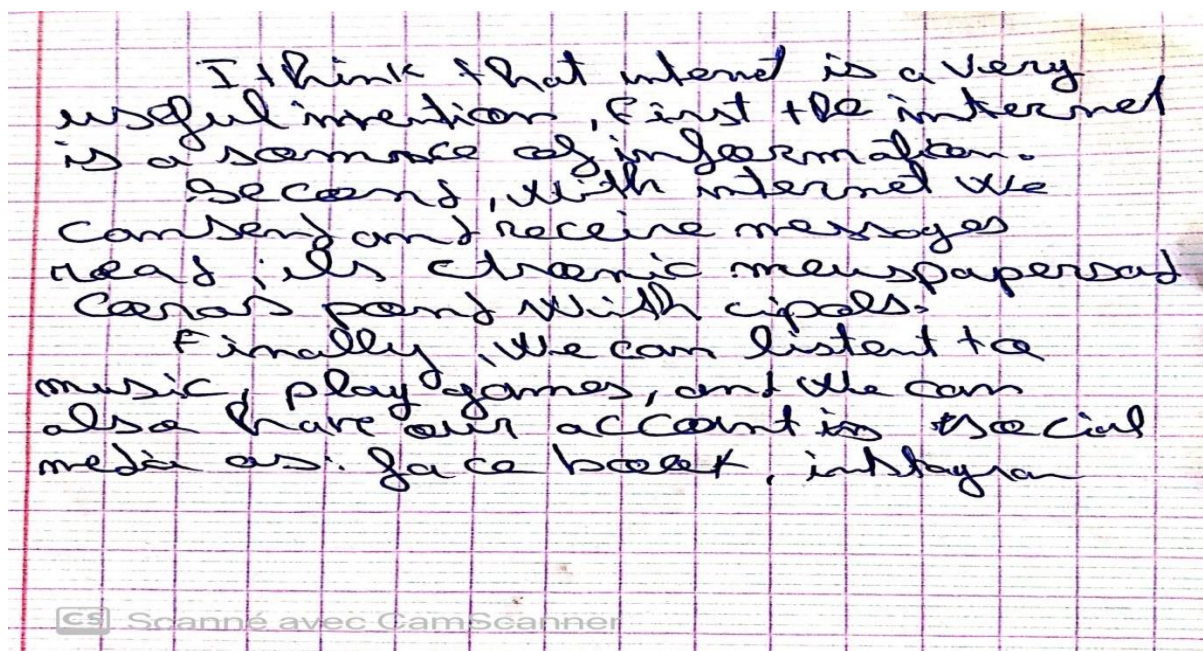 I think that internet is a very
useful invention, First the internet
is a somnce of information.
Second, with internet we
can send and receive messages
read, els ctronic meuspapersad
Coras pond with cipals.
Finally, we can listent to
music, play games, and we can
also have our account in social
media as: face book, instagran
CS Scanné avec CamScanner